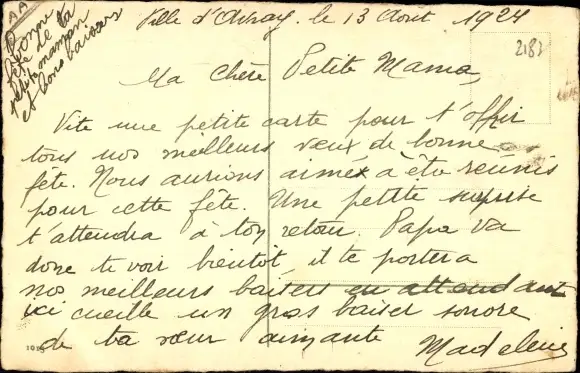 Ville d'Avray. le 13 Août 1924
Bonne
fête de ta
petite maman
et bons baisers
2183
Ma Chère Petite Mama,
Vite une petite carte pour t'offrir
tous nos meilleurs vœux de bonne
fête. Nous aurions aimé à être réunis
pour cette fête. Une petite surprise
t'attendra à ton retour. Papa va
donc te voir bientôt il te portera
nos meilleurs baisers en attendant
ici cueille un gros baiser sonore
de ta sœur aimante Madeleine